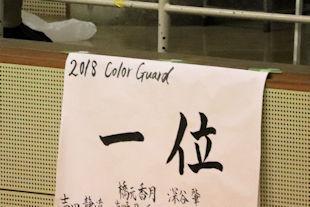 2018 Color Guard
一位
橋元香月 深谷肇